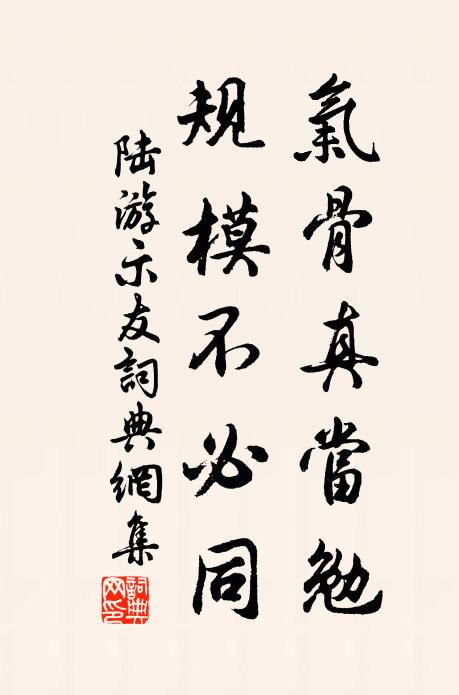 氣骨真當勉
規模不必同
陸游示友詞典網集
詞典網印